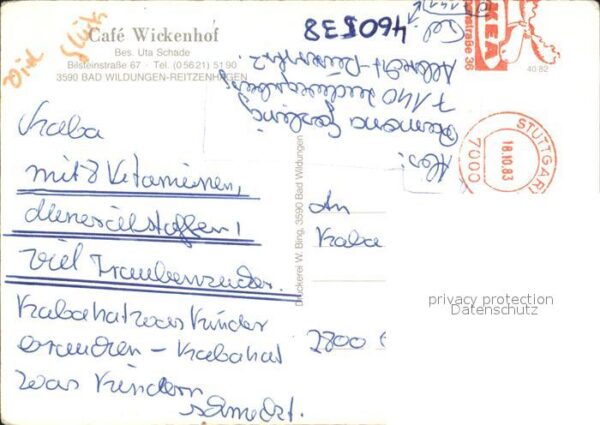 Café Wickenhof
Bes. Uta Schade
Bilsteinstraße 67 · Tel. (05621) 5190
3590 BAD WILDUNGEN-REITZENHAGEN
Kaba
mit 8 Vitaminen,
Mineralstoffen!
viel Traubenzucker.
Kaba hat was Kinder
brauchen - Kaba hat
was Kindern
schmeckt.
Druckerei W. Bing, 3590 Bad Wildungen
460538
Tel.
7140 Ludwigsburg
Ramona
Abs:
An
Kaba
2800
IKEA
nstraße 36
40 82
STUTTGAR
18.10.83
7000
privacy protection
Datenschutz